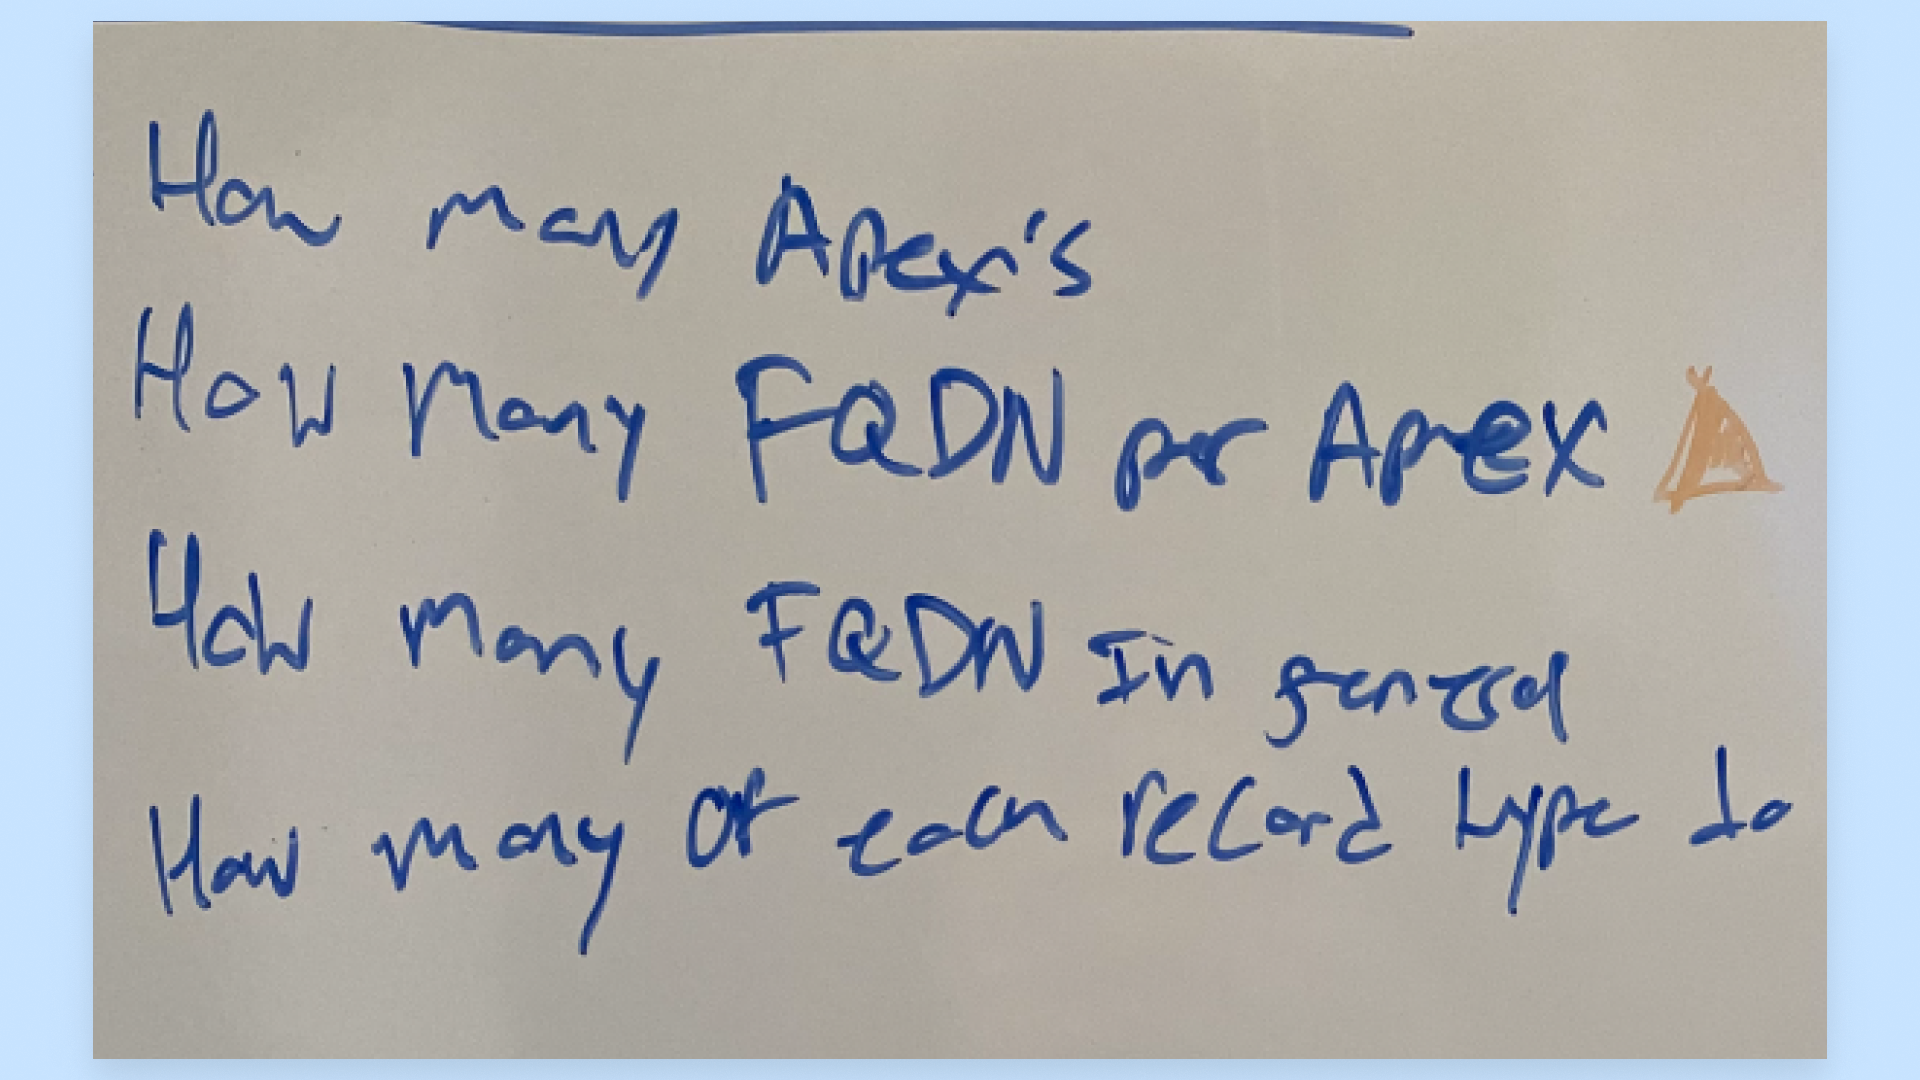 How many Apex's
How many FQDN per Apex
How many FQDN In general
How many of each record type do